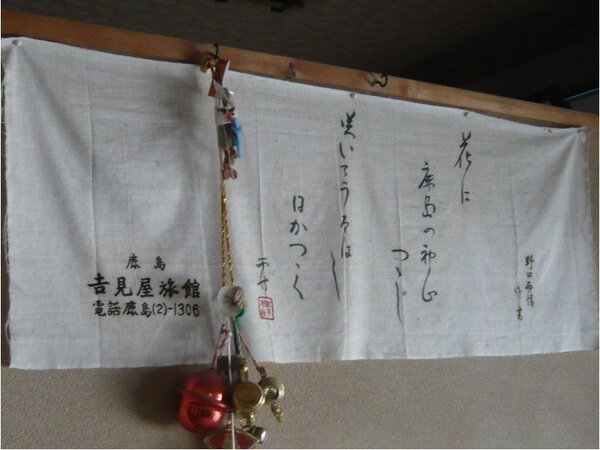 野口雨情
花は
鹿島の神山
つゝじ
咲いてうるはし
日かつゝく
雨情
鹿島
𠮷見屋旅館
電話鹿島(2)-1306